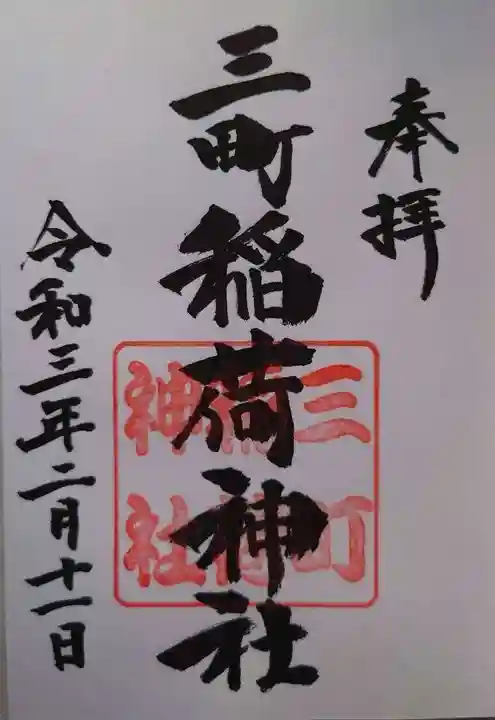 奉拝
三町稲荷神社
三町
稲荷
神社
令和三年二月十一日